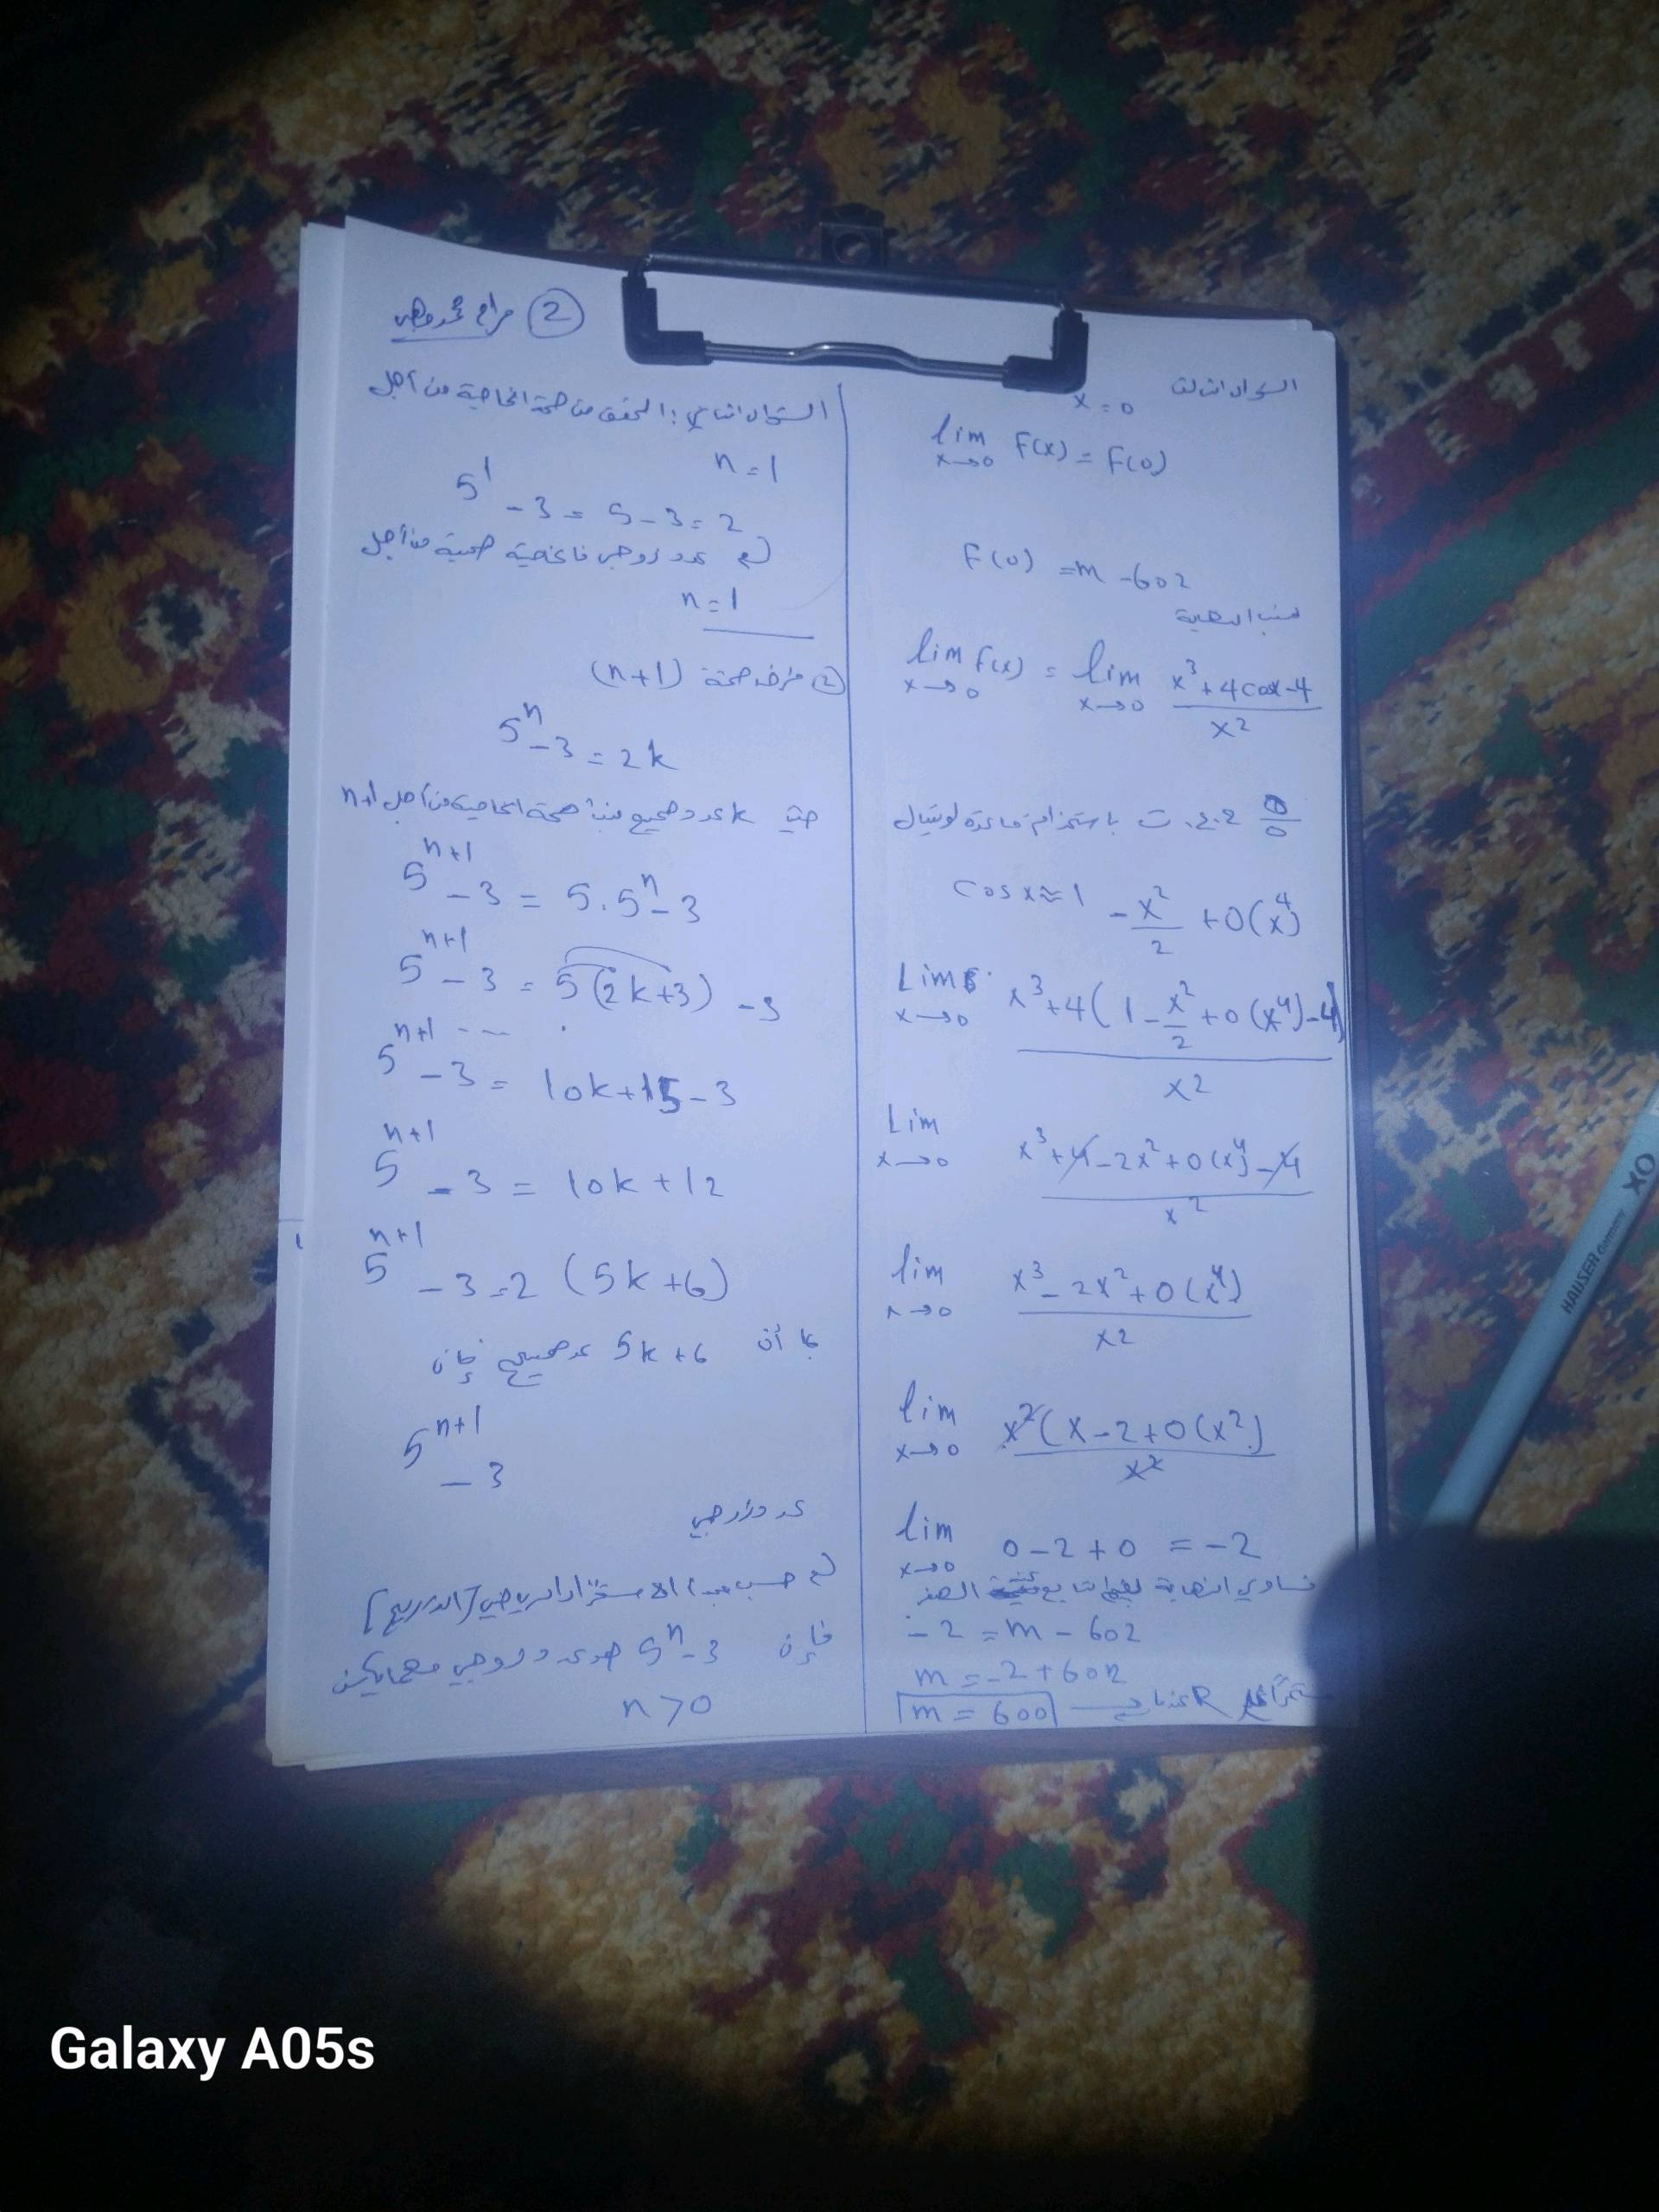 ②
السؤال الثاني: التحقق من صحة الخاصية من أجل
n = 1
5¹ - 3 = 5 - 3 = 2
عدد زوجي فالخاصية صحيحة من أجل
n = 1
② نفرض صحة (n+1)
5ⁿ - 3 = 2k
حيث k عدد صحيح نثبت صحة الخاصية من أجل n+1
5ⁿ⁺¹ - 3 = 5.5ⁿ - 3
5ⁿ⁺¹ - 3 = 5(2k+3) - 3
5ⁿ⁺¹ - 3 = 10k+15-3
5ⁿ⁺¹ - 3 = 10k+12
5ⁿ⁺¹ - 3 = 2 (5k+6)
بما أن 5k+6 عدد صحيح فإن
5ⁿ⁺¹ - 3
عدد زوجي
حسب مبدأ الاستقراء الرياضي [التدريج]
فإن 5ⁿ-3 هو عدد زوجي مهما يكن
n>0
السؤال الثالث
x=0
lim x→0 F(x) = F(0)
F(0) = m - 602
نحسب النهاية
lim x→0 f(x) = lim x→0 x³+4cosx-4 / x²
0/0 ح.ع.ت باستخدام قاعدة لوبيتال
Cosx ≈ 1 - x²/2 + 0(x⁴)
Lim x→0 x³+4(1 - x²/2 + 0(x⁴)-4) / x²
Lim x→0 x³+4-2x²+0(x⁴)-4 / x²
lim x→0 x³-2x²+0(x⁴) / x²
lim x→0 x²(x-2+0(x²)) / x²
lim x→0 0-2+0 = -2
-2 = m - 602
m = -2+602
m = 600